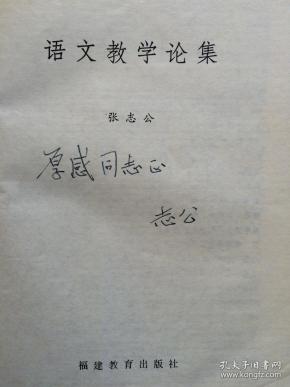 语文教学论集
张志公
厚感同志正
志公
福建教育出版社
孔夫子旧书网